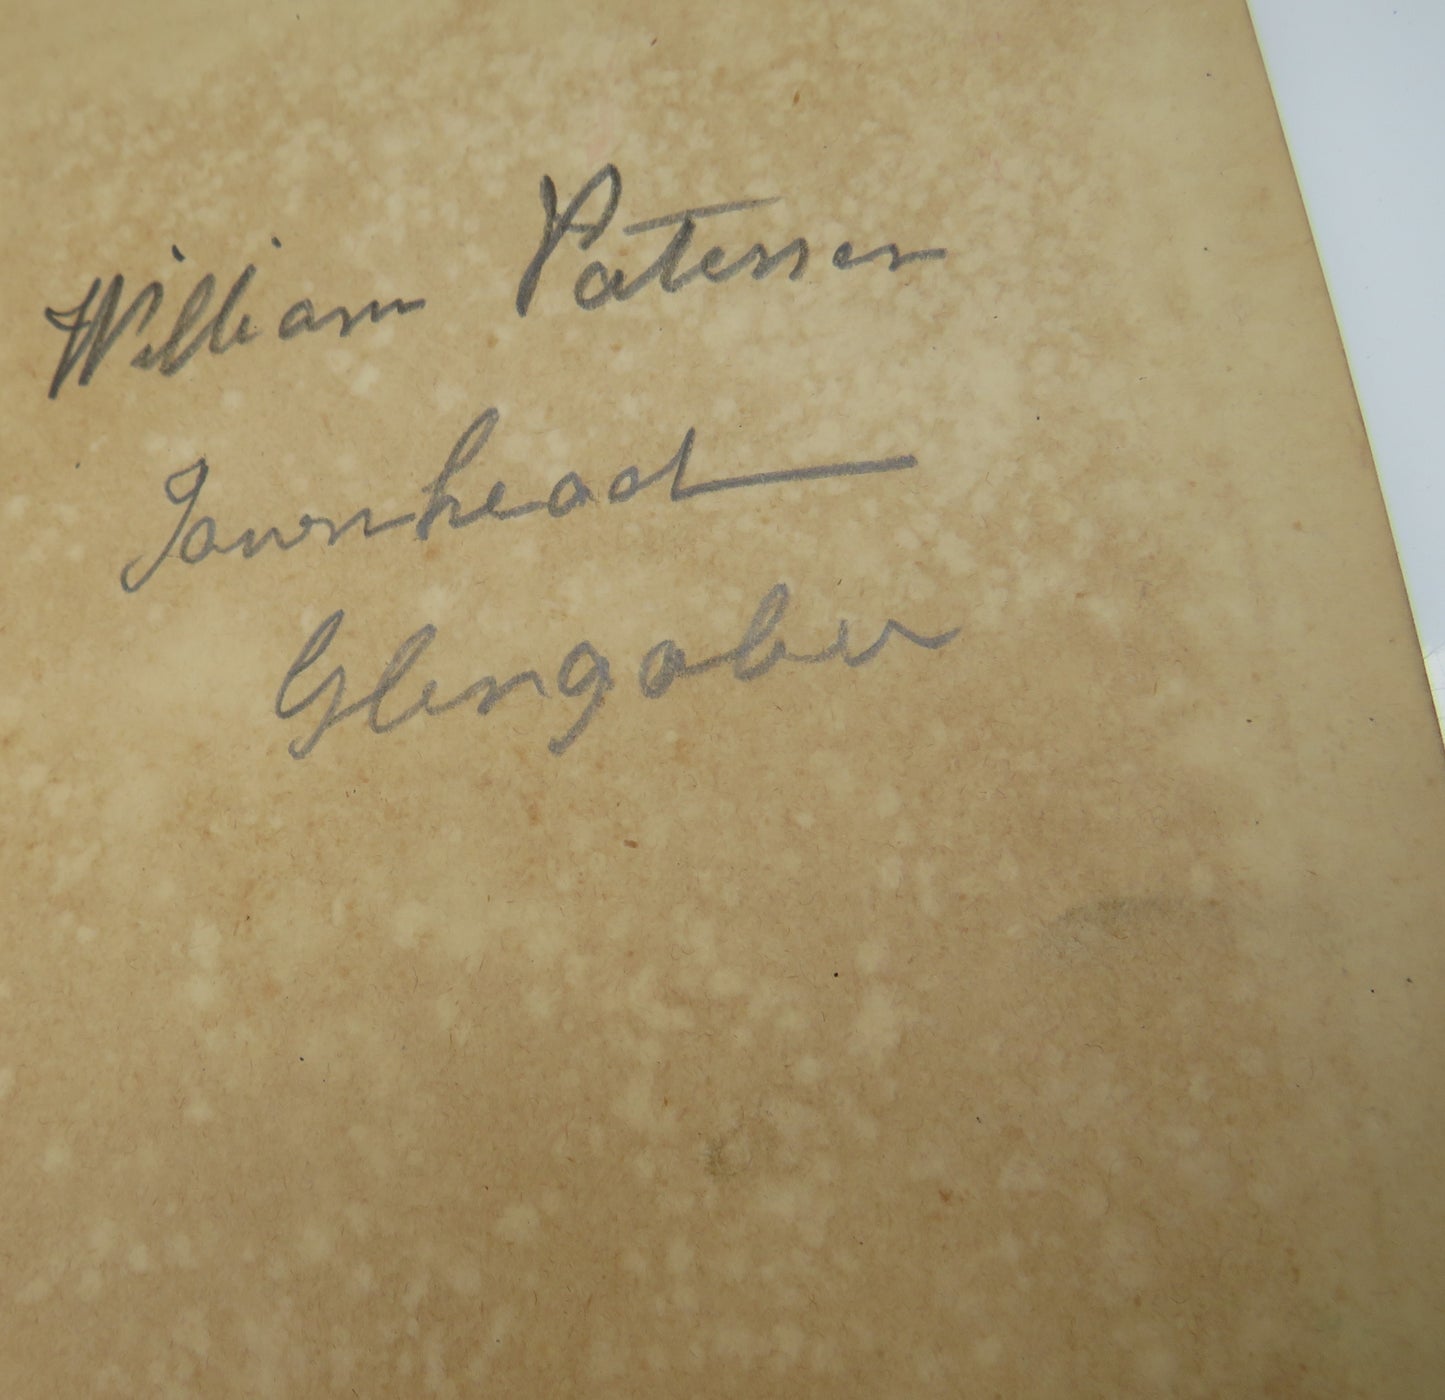 William Paterson
Townhead
Glengaber